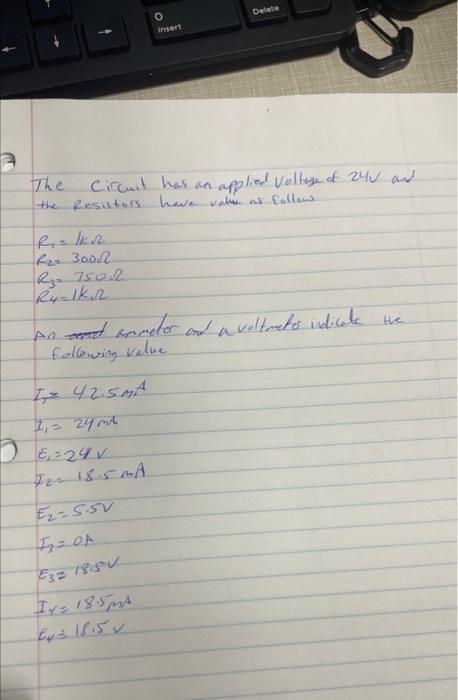 Delete
O
Insert
The Circuit has an applied Voltage of 24V and
the Resistors have value as follow
R1 = 1kΩ
R2= 300Ω
R3= 750Ω
R4=1kΩ
An ammetor and a voltmeter indicate the
following value
IT= 42.5mA
I1= 24mA
E1=24V
I2= 18.5mA
E2=5.5V
I3=0A
E3= 18.5V
I4= 18.5mA
E4= 18.5V